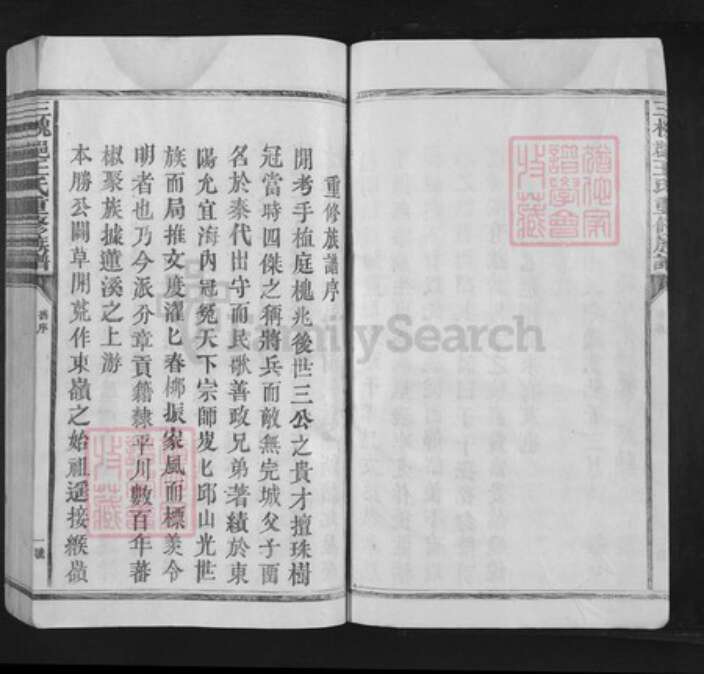 重修族譜序
聞考手植庭槐兆後世三公之貴才擅珠樹
冠當時四傑之稱將兵而敵無完城父子兩
名於秦代出守而民歌善政兄弟著績於東
陽允宜海內冠冕天下宗師岌匕邱山光世
族而局推文度濯匕春柳振家風而標羨令
明者也乃今派分章貢籍隸平川數百年蕃
椒聚族據蓮溪之上游
本勝公闢草開荒作東嶺之始祖遥接緱嶺
三槐邑王氏重修族譜
舊序
一號
FamilySearch
三槐邑王氏重修族譜
譜學會
收藏